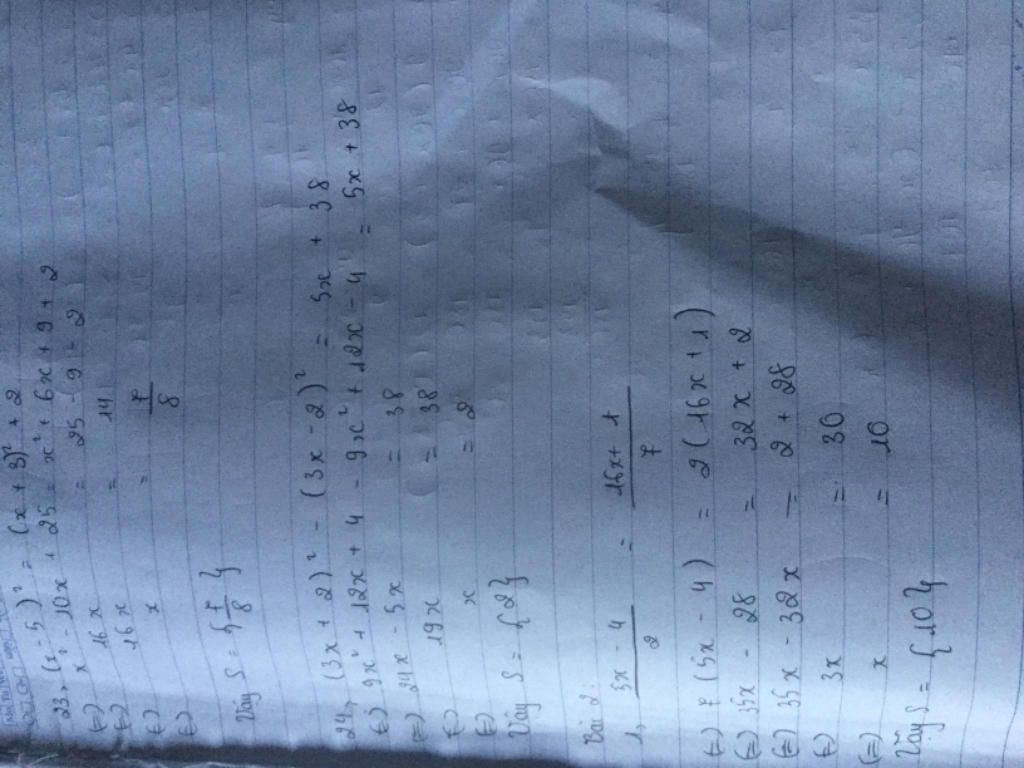 23, (x - 5)² = (x + 3)² + 2
(=) x² - 10x + 25 = x² + 6x + 9 + 2
(=) 16x = 25 - 9 - 2
(=) 16x = 14
(=) x = 7/8
Vậy S = {7/8}
24, (3x + 2)² - (3x - 2)² = 5x + 38
(=) 9x² + 12x + 4 - 9x² + 12x - 4 = 5x + 38
(=) 24x - 5x = 38
(=) 19x = 38
(=) x = 2
Vậy S = {2}
Bài 2:
1, 5x - 4 / 2 = 16x + 1 / 7
(=) 7(5x - 4) = 2(16x + 1)
(=) 35x - 28 = 32x + 2
(=) 35x - 32x = 2 + 28
(=) 3x = 30
(=) x = 10
Vậy S = {10}